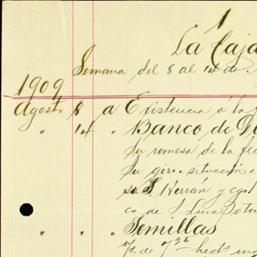 1
La Caja
Semana del 8 al 14 de
1909
Agosto 8 a Existencia á la
" 14 " Banco de
Su remesa de
Su giro situación
S. Herrán y
co de S. Luis Poto
" " " Semillas
de 72 hect